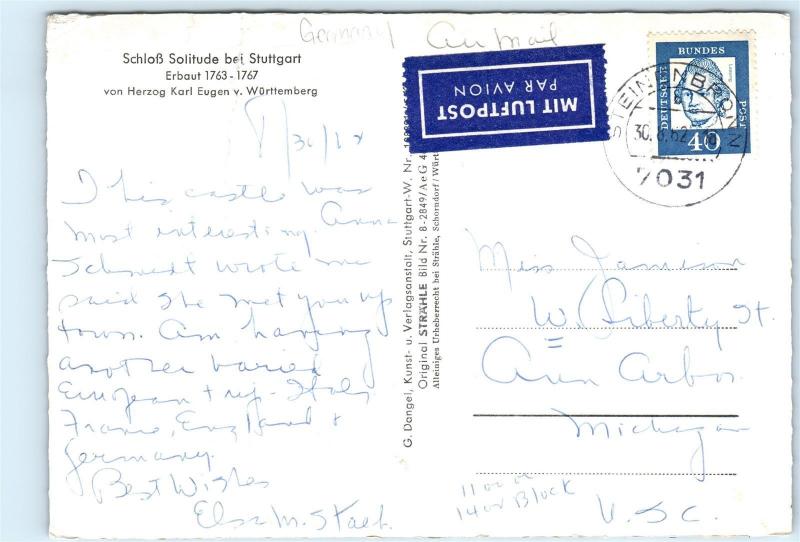 Germany Air Mail
Schloß Solitude bei Stuttgart
Erbaut 1763-1767
von Herzog Karl Eugen v. Württemberg
MIT LUFTPOST
PAR AVION
DEUTSCHE
BUNDES
POST
40
STEINENBRONN
30.8.62
7031
8/30/62
This castle was
most interesting. Anna
Schmidt wrote me
said she met you up
town. Am having
another varied
European trip - Italy,
France, England &
Germany.
Best Wishes
Elsa M. Staeb
G. Dangel, Kunst- u. Verlagsanstalt, Stuttgart-W.
Original STRÄHLE Bild Nr. 8-2849/AeG
Alleiniges Urheberrecht bei Strähle, Schorndorf/Würt
Miss Jamison
W. Liberty St.
Ann Arbor
Michigan
1400 Block